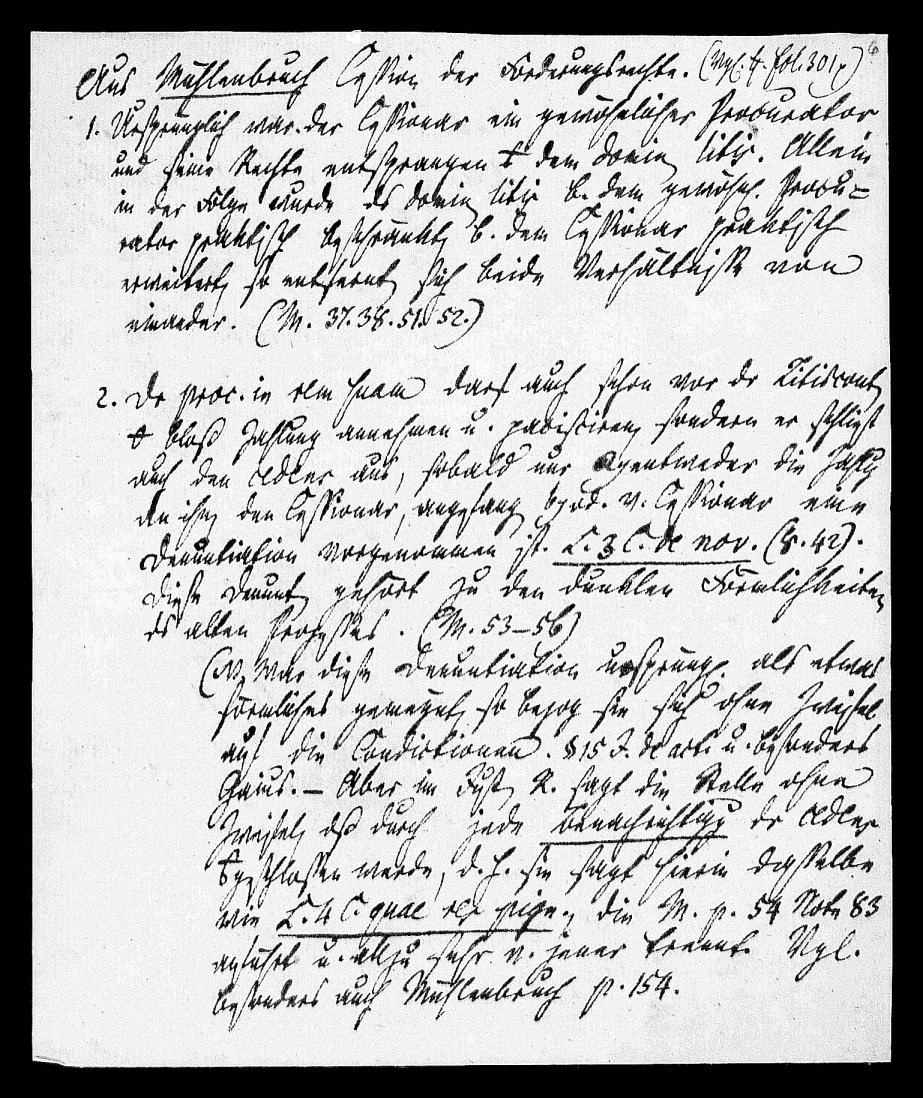 Aus Mühlenbruch Cession der Forderungsrechte. (Vgl. fol. 301) 6
1. Ursprünglich war der Cessionar ein gewöhnlicher Procurator
und seine Rechte entsprangen dem domin litis. Allein
in der Folge wurde ds domin litis b. dem gewöhnl. Procu=
rator praktisch beschränkt b. dem Cessionar praktisch
erweitert so entfernt sich beide Verhältnisse von
einander. (M. 37. 38. 51. 52.)
2. De proc. in rem suam darf auch schon vor dr Litiscont
bloß Zahlung annehmen u. pacisciren sondern er schließt
auch den aus, sobald nur entweder die Zahlg
an ihn, den Cessionar, angefang od. v. Cessionar eine
Denuntiation vorgenommen ist. L. 3 C. de nov. (8. 42).
Diese Denunt gehört zu den dunklen Förmlichkeiten
ds alten Prozesses. (M. 53–56)
(N. War diese Denuntiation ursprüngl. als etwas
förmliches gemeynt so bezog sie sich ohne Zweifel
auf die Condictionen. § 15 J. de act. u. besonders
Gaius. – Aber im Just R. sagt die Stelle ohne
Zweifel ds durch jede Benachrichtigg dr
geschlossen werde, d. h. sie sagt hierin dasselbe
wie L. 4 C. quae res pign. die M. p. 54 Note 83
anführt u. allzu sehr v. jener trennt. Vgl.
besonders auch Mühlenbruch p. 154.